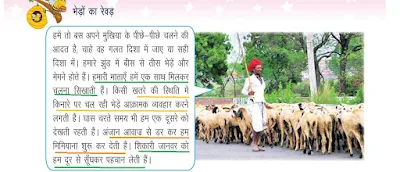 भेड़ों का रेवड़
हमें तो बस अपने मुखिया के पीछे-पीछे चलने की
आदत है, चाहे वह गलत दिशा में जाए या सही
दिशा में। हमारे झुंड में बीस से तीस भेड़ें और
मेमने होते हैं। हमारी माताएँ हमें एक साथ मिलकर
चलना सिखाती हैं। किसी खतरे की स्थिति में
किनारे पर चल रही भेड़ें आक्रामक व्यवहार करने
लगती हैं। घास चरते समय भी हम एक दूसरे को
देखती रहती हैं। अंजान आवाज़ से डर कर हम
मिमियाना शुरू कर देती हैं। शिकारी जानवर को
हम दूर से सूँघकर पहचान लेती हैं।